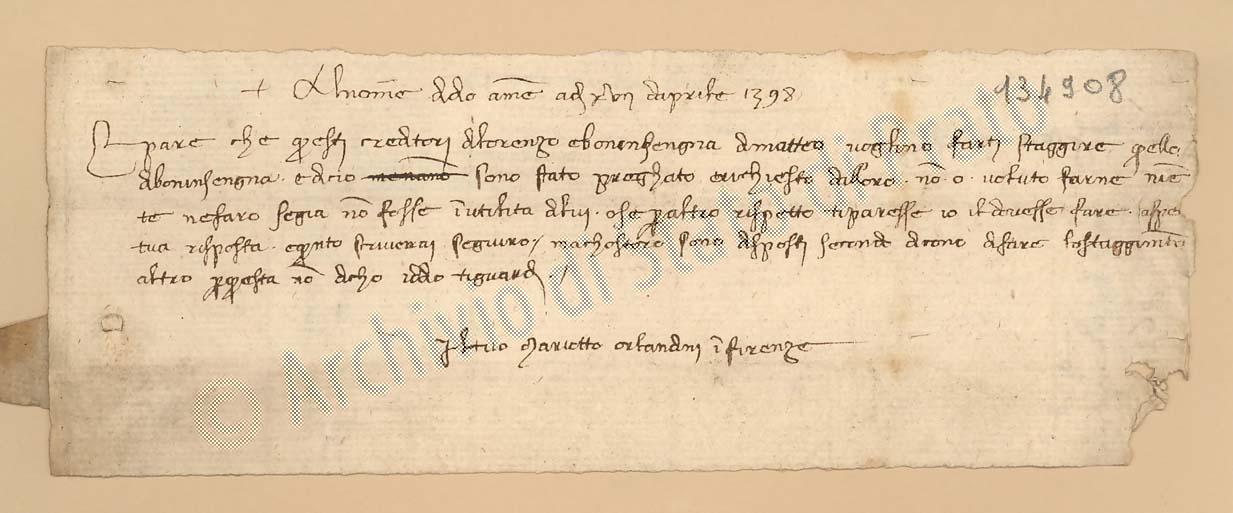 + Al nome ddio ame adi xvii daprile 1398
134908
E pare che questi creditori di lorenzo e boninsengna di matteo voglino farti staggire quello
di boninsengna. e di cio me nano sono stato preghato e richiesto da lloro. no. o. voluto farne nie
te ne faro se gia no fosse i utilita di lui. o se p altro rispetto ti paresse io il dovesse fare. aspe
tua risposta. e quanto scriverai seguiro / ma chostoro sono disposti secondo dicono di fare lo staggimeto
altro p questa no dicho iddio ti guardi /
Il tuo Mariotto orlandini i firenze
© Archivio di Stato di Prato